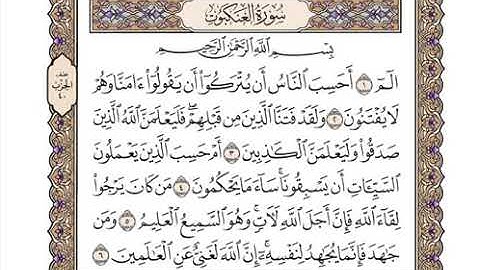 سُورَةُ العَنكَبُوتِ
بِسْمِ ٱللَّهِ ٱلرَّحْمَٰنِ ٱلرَّحِيمِ
الٓمٓ ١ أَحَسِبَ ٱلنَّاسُ أَن يُتْرَكُوٓا۟ أَن يَقُولُوٓا۟ ءَامَنَّا وَهُمْ
لَا يُفْتَنُونَ ٢ وَلَقَدْ فَتَنَّا ٱلَّذِينَ مِن قَبْلِهِمْ ۖ فَلَيَعْلَمَنَّ ٱللَّهُ ٱلَّذِينَ
صَدَقُوا۟ وَلَيَعْلَمَنَّ ٱلْكَٰذِبِينَ ٣ أَمْ حَسِبَ ٱلَّذِينَ يَعْمَلُونَ
ٱلسَّيِّـَٔاتِ أَن يَسْبِقُونَا ۚ سَآءَ مَا يَحْكُمُونَ ٤ مَن كَانَ يَرْجُوا۟
لِقَآءَ ٱللَّهِ فَإِنَّ أَجَلَ ٱللَّهِ لَءَاتٍ ۚ وَهُوَ ٱلسَّمِيعُ ٱلْعَلِيمُ ٥ وَمَن
جَٰهَدَ فَإِنَّمَا يُجَٰهِدُ لِنَفْسِهِۦٓ ۚ إِنَّ ٱللَّهَ لَغَنِىٌّ عَنِ ٱلْعَٰلَمِينَ ٦
نصف
الحزب
٤٠